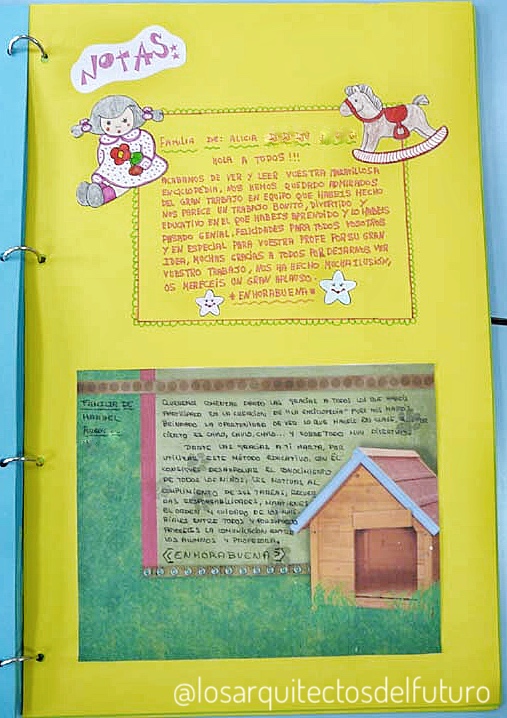 NOTAS:
FAMILIA DE: ALICIA
HOLA A TODOS!!!
ACABAMOS DE VER Y LEER VUESTRA MARAVILLOSA
ENCICLOPEDIA, NOS HEMOS QUEDADO ADMIRADOS
DEL GRAN TRABAJO EN EQUIPO QUE HABEIS HECHO
NOS PARECE UN TRABAJO BONITO, DIVERTIDO Y
EDUCATIVO EN EL QUE HABEIS APRENDIDO Y LO HABEIS
PASADO GENIAL. FELICIDADES PARA TODOS VOSOTROS
Y EN ESPECIAL PARA VUESTRA PROFE POR SU GRAN
IDEA, MUCHAS GRACIAS A TODOS POR DEJARNOS VER
VUESTRO TRABAJO, NOS HA HECHO MUCHA ILUSIÓN,
OS MERECEIS UN GRAN APLAUSO.
* ENHORABUENA *
FAMILIA DE
MANUEL
QUEREMOS COMENZAR DANDO LAS GRACIAS A TODOS LOS QUE HABEIS
PARTICIPADO EN LA CREACION DE "LA ENCICLOPEDIA" PUES NOS HABEIS
BRINDADO LA OPORTUNIDAD DE VER LO QUE HACEIS EN CLASE,
CIERTO ES CHULO, CHULO, CHULO... Y SOBRETODO MUY DIVERTIDO.
DARTE LAS GRACIAS A TI MARTA, POR
UTILIZAR ESTE MÉTODO EDUCATIVO, CON ÉL
CONSIGUES DESARROLLAR EL CONOCIMIENTO
DE TODOS LOS NIÑOS, LES MOTIVAS AL
CUMPLIMIENTO DE SUS TAREAS,
DAS RESPONSABILIDADES,
EL ORDEN Y CUIDADO DE LOS MATE-
RIALES ENTRE TODOS Y
LA COMUNICACIÓN ENTRE
LOS ALUMNOS Y PROFESORA.
¡ENHORABUENA!
@losarquitectosdelfuturo